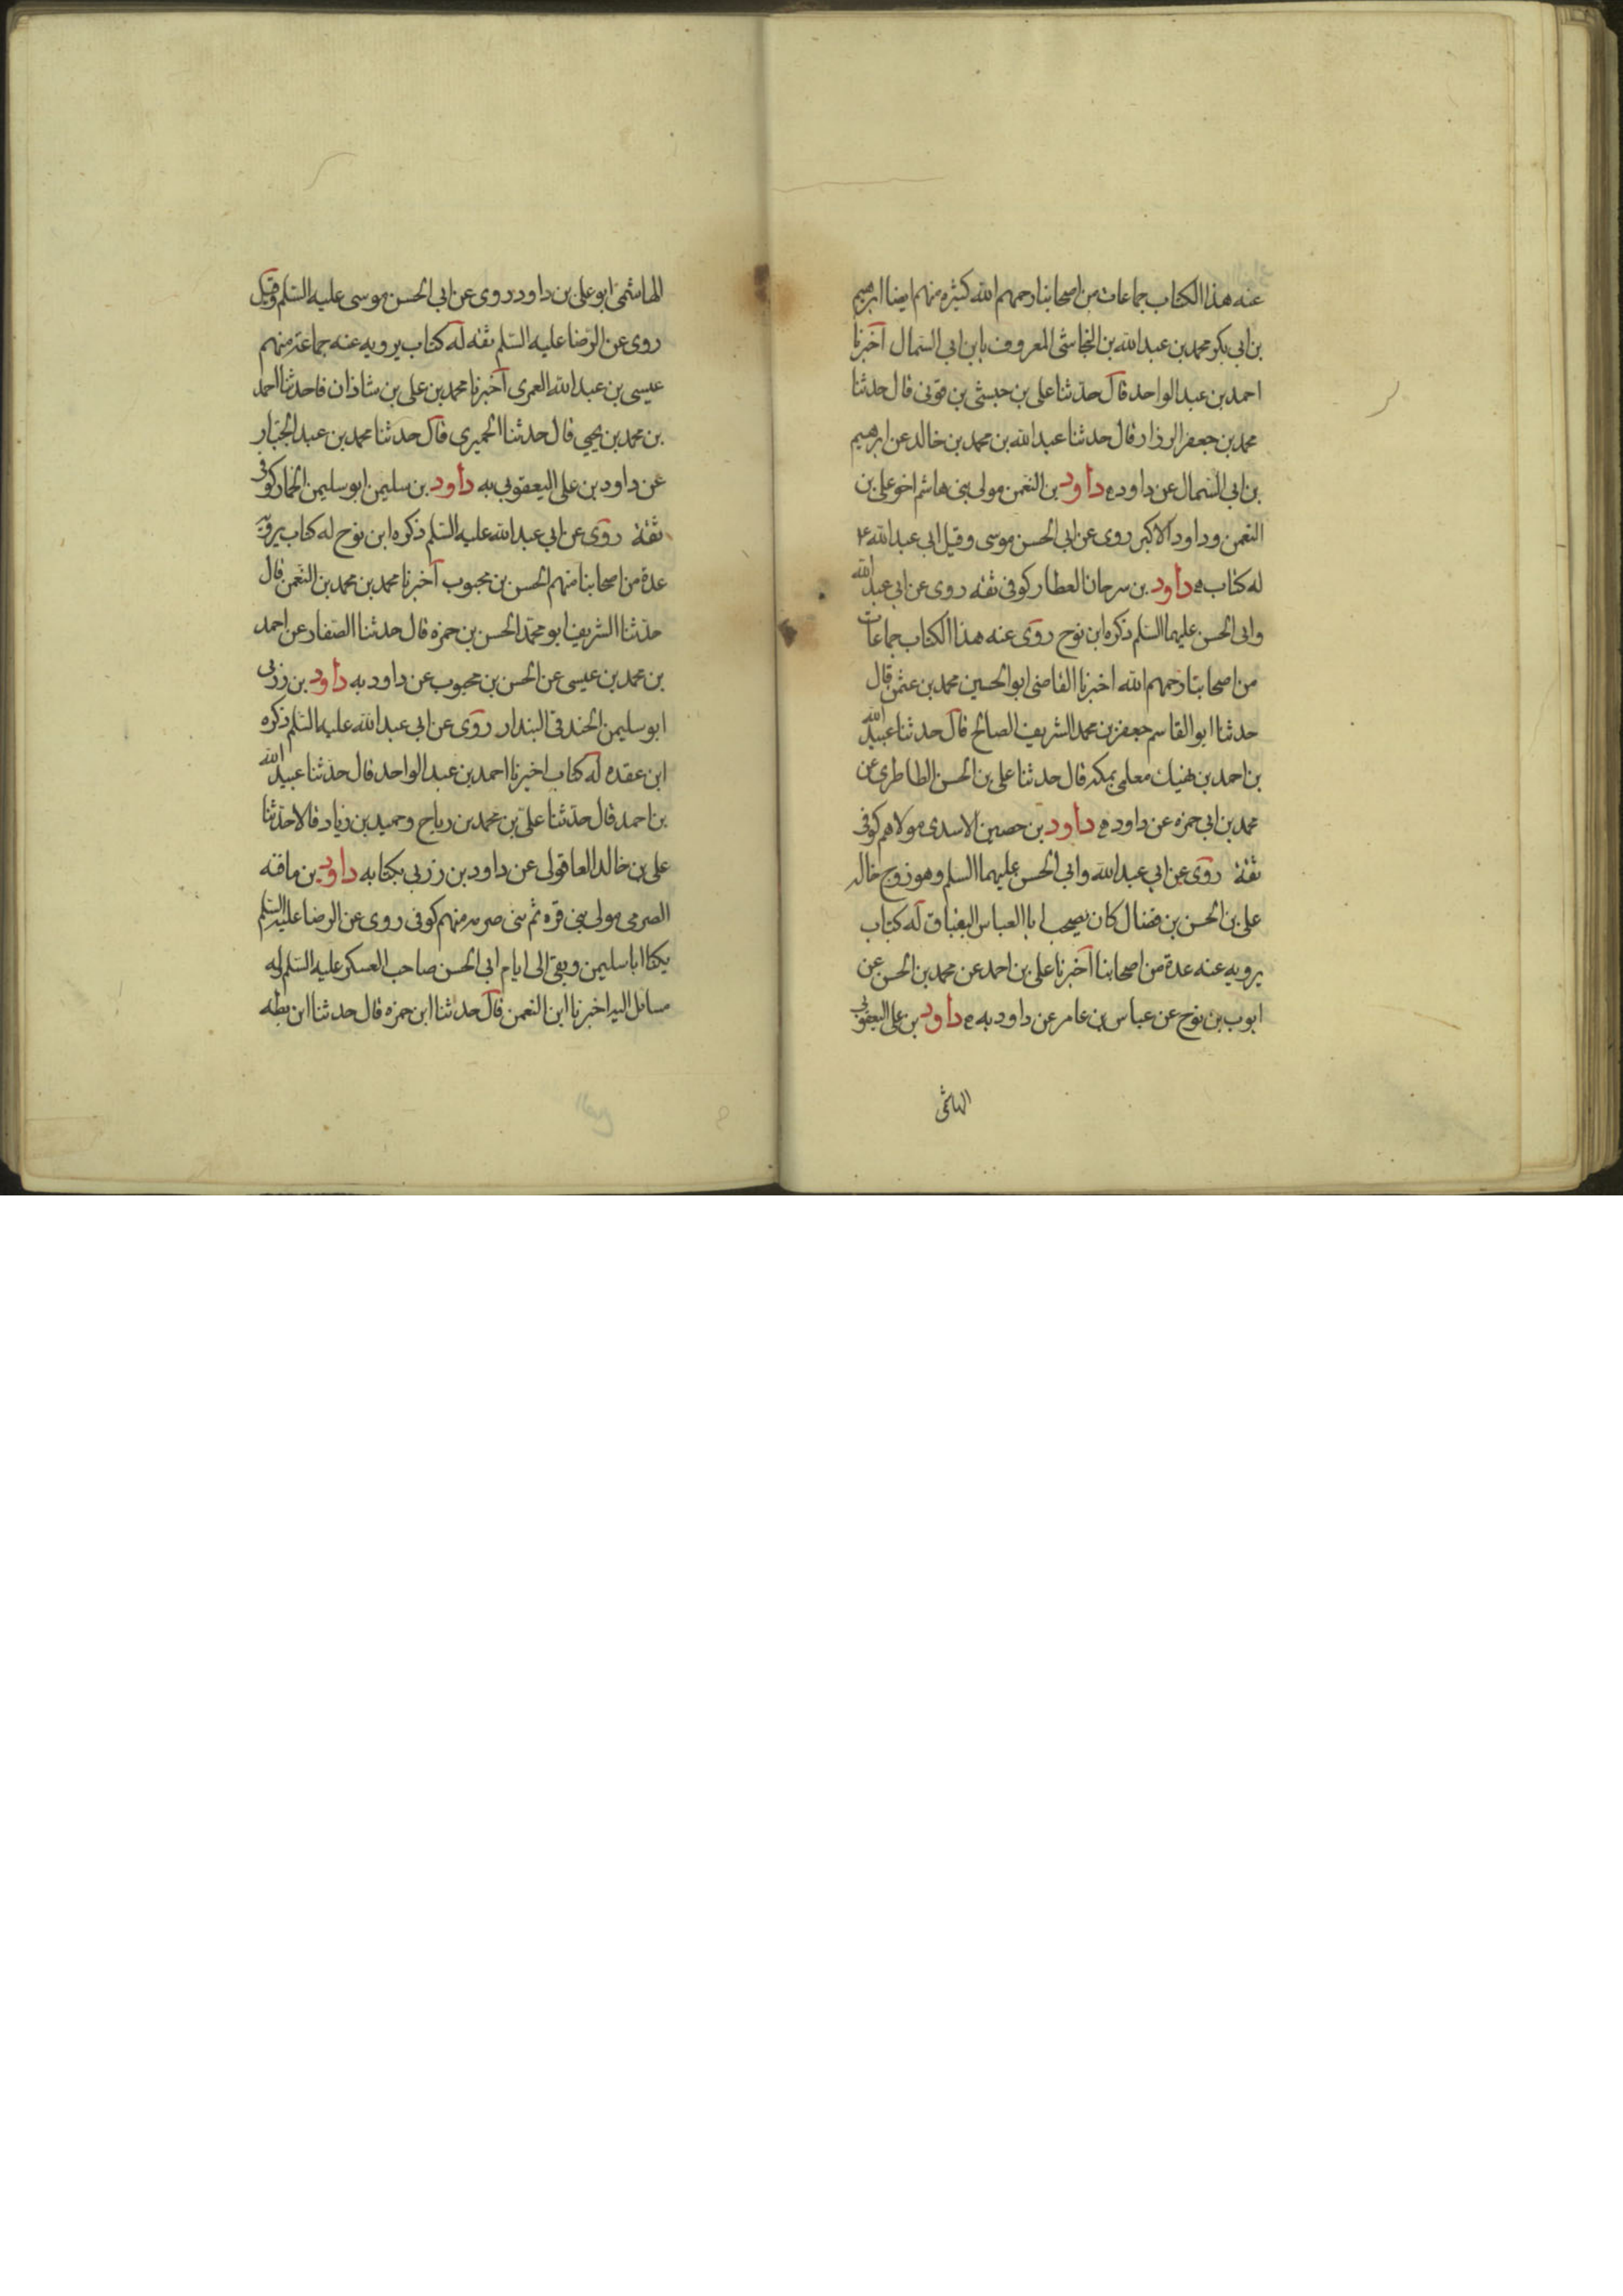 عنه هذا الكتاب جماعات من اصحابنا رحمهم الله كثيره منهم ايضا ابرهيم
بن ابي بكر محمد بن عبد الله بن النجاشي المعروف بابن ابي السمال اخبرنا
احمد بن عبد الواحد قال حدثنا علي بن حبشي بن قوني قال حدثنا
محمد بن جعفر الرزاز قال حدثنا عبد الله بن محمد بن خالد عن ابرهيم
بن ابي السمال عن داود ه داود بن النعمن مولى بني هاشم اخو علي بن
النعمن وداود الاكبر روى عن ابي الحسن موسى وقيل ابي عبد الله ع
له كتاب ه داود بن سرحان العطار كوفي ثقه روى عن ابي عبد الله
وابي الحسن عليهما السلم ذكره ابن نوح روى عنه هذا الكتاب جماعات
من اصحابنا رحمهم الله اخبرنا القاضي ابو الحسين محمد بن عثمن قال
حدثنا ابو القاسم جعفر بن محمد الشريف الصالح قال حدثنا عبيد الله
بن احمد بن نهيك معلمي بمكه قال حدثنا علي بن الحسن الطاطري عن
محمد بن ابي حمزه عن داود ه داود بن حصين الاسدي مولاهم كوفي
ثقة روى عن ابي عبد الله وابي الحسن عليهما السلم وهو زوج خاله
علي بن الحسن بن فضال كان يصحب ابا العباس البقباق له كتاب
يرويه عنه عدة من اصحابنا اخبرنا علي بن احمد عن محمد بن الحسن عن
ايوب بن نوح عن عباس بن عامر عن داود به ه داود بن علي اليعقوبي
الهاشمي
الهاشمي ابو علي بن داود روى عن ابي الحسن موسى عليه السلم وقيل
روى عن الرضا عليه السلم ثقه له كتاب يرويه عنه جماعة منهم
عيسى بن عبد الله العمري اخبرنا محمد بن علي بن شاذان قا حدثنا احمد
بن محمد بن يحيى قال حدثنا الحميري قال حدثنا محمد بن عبد الجبار
عن داود بن علي اليعقوبي به داود بن سليمن ابو سليمن الحمار كوفي
ثقة روى عن ابي عبد الله عليه السلم ذكره ابن نوح له كتاب يرويه
عدة من اصحابنا منهم الحسن بن محبوب اخبرنا محمد بن محمد بن النعمن قال
حدثنا الشريف ابو محمد الحسن بن حمزه قال حدثنا الصفار عن احمد
بن محمد بن عيسى عن الحسن بن محبوب عن داود به داود بن زربي
ابو سليمن الخندقي البندار روى عن ابي عبد الله عليه السلم ذكره
ابن عقده له كتاب اخبرنا احمد بن عبد الواحد قال حدثنا عبيد الله
بن احمد قال حدثنا علي بن محمد بن رباح وحميد بن زياد قالا حدثنا
علي بن خالد العاقولي عن داود بن زربي بكتابه داود بن مافنه
الصرمي مولى بني قره ثم بني صرمه منهم كوفي روى عن الرضا عليه السلم
يكنا ابا سليمن وبقي الى ايام ابي الحسن صاحب العسكر عليه السلم له
مسائل اليه اخبرنا ابن النعمن قال حدثنا ابن حمزه قال حدثنا ابن بطه